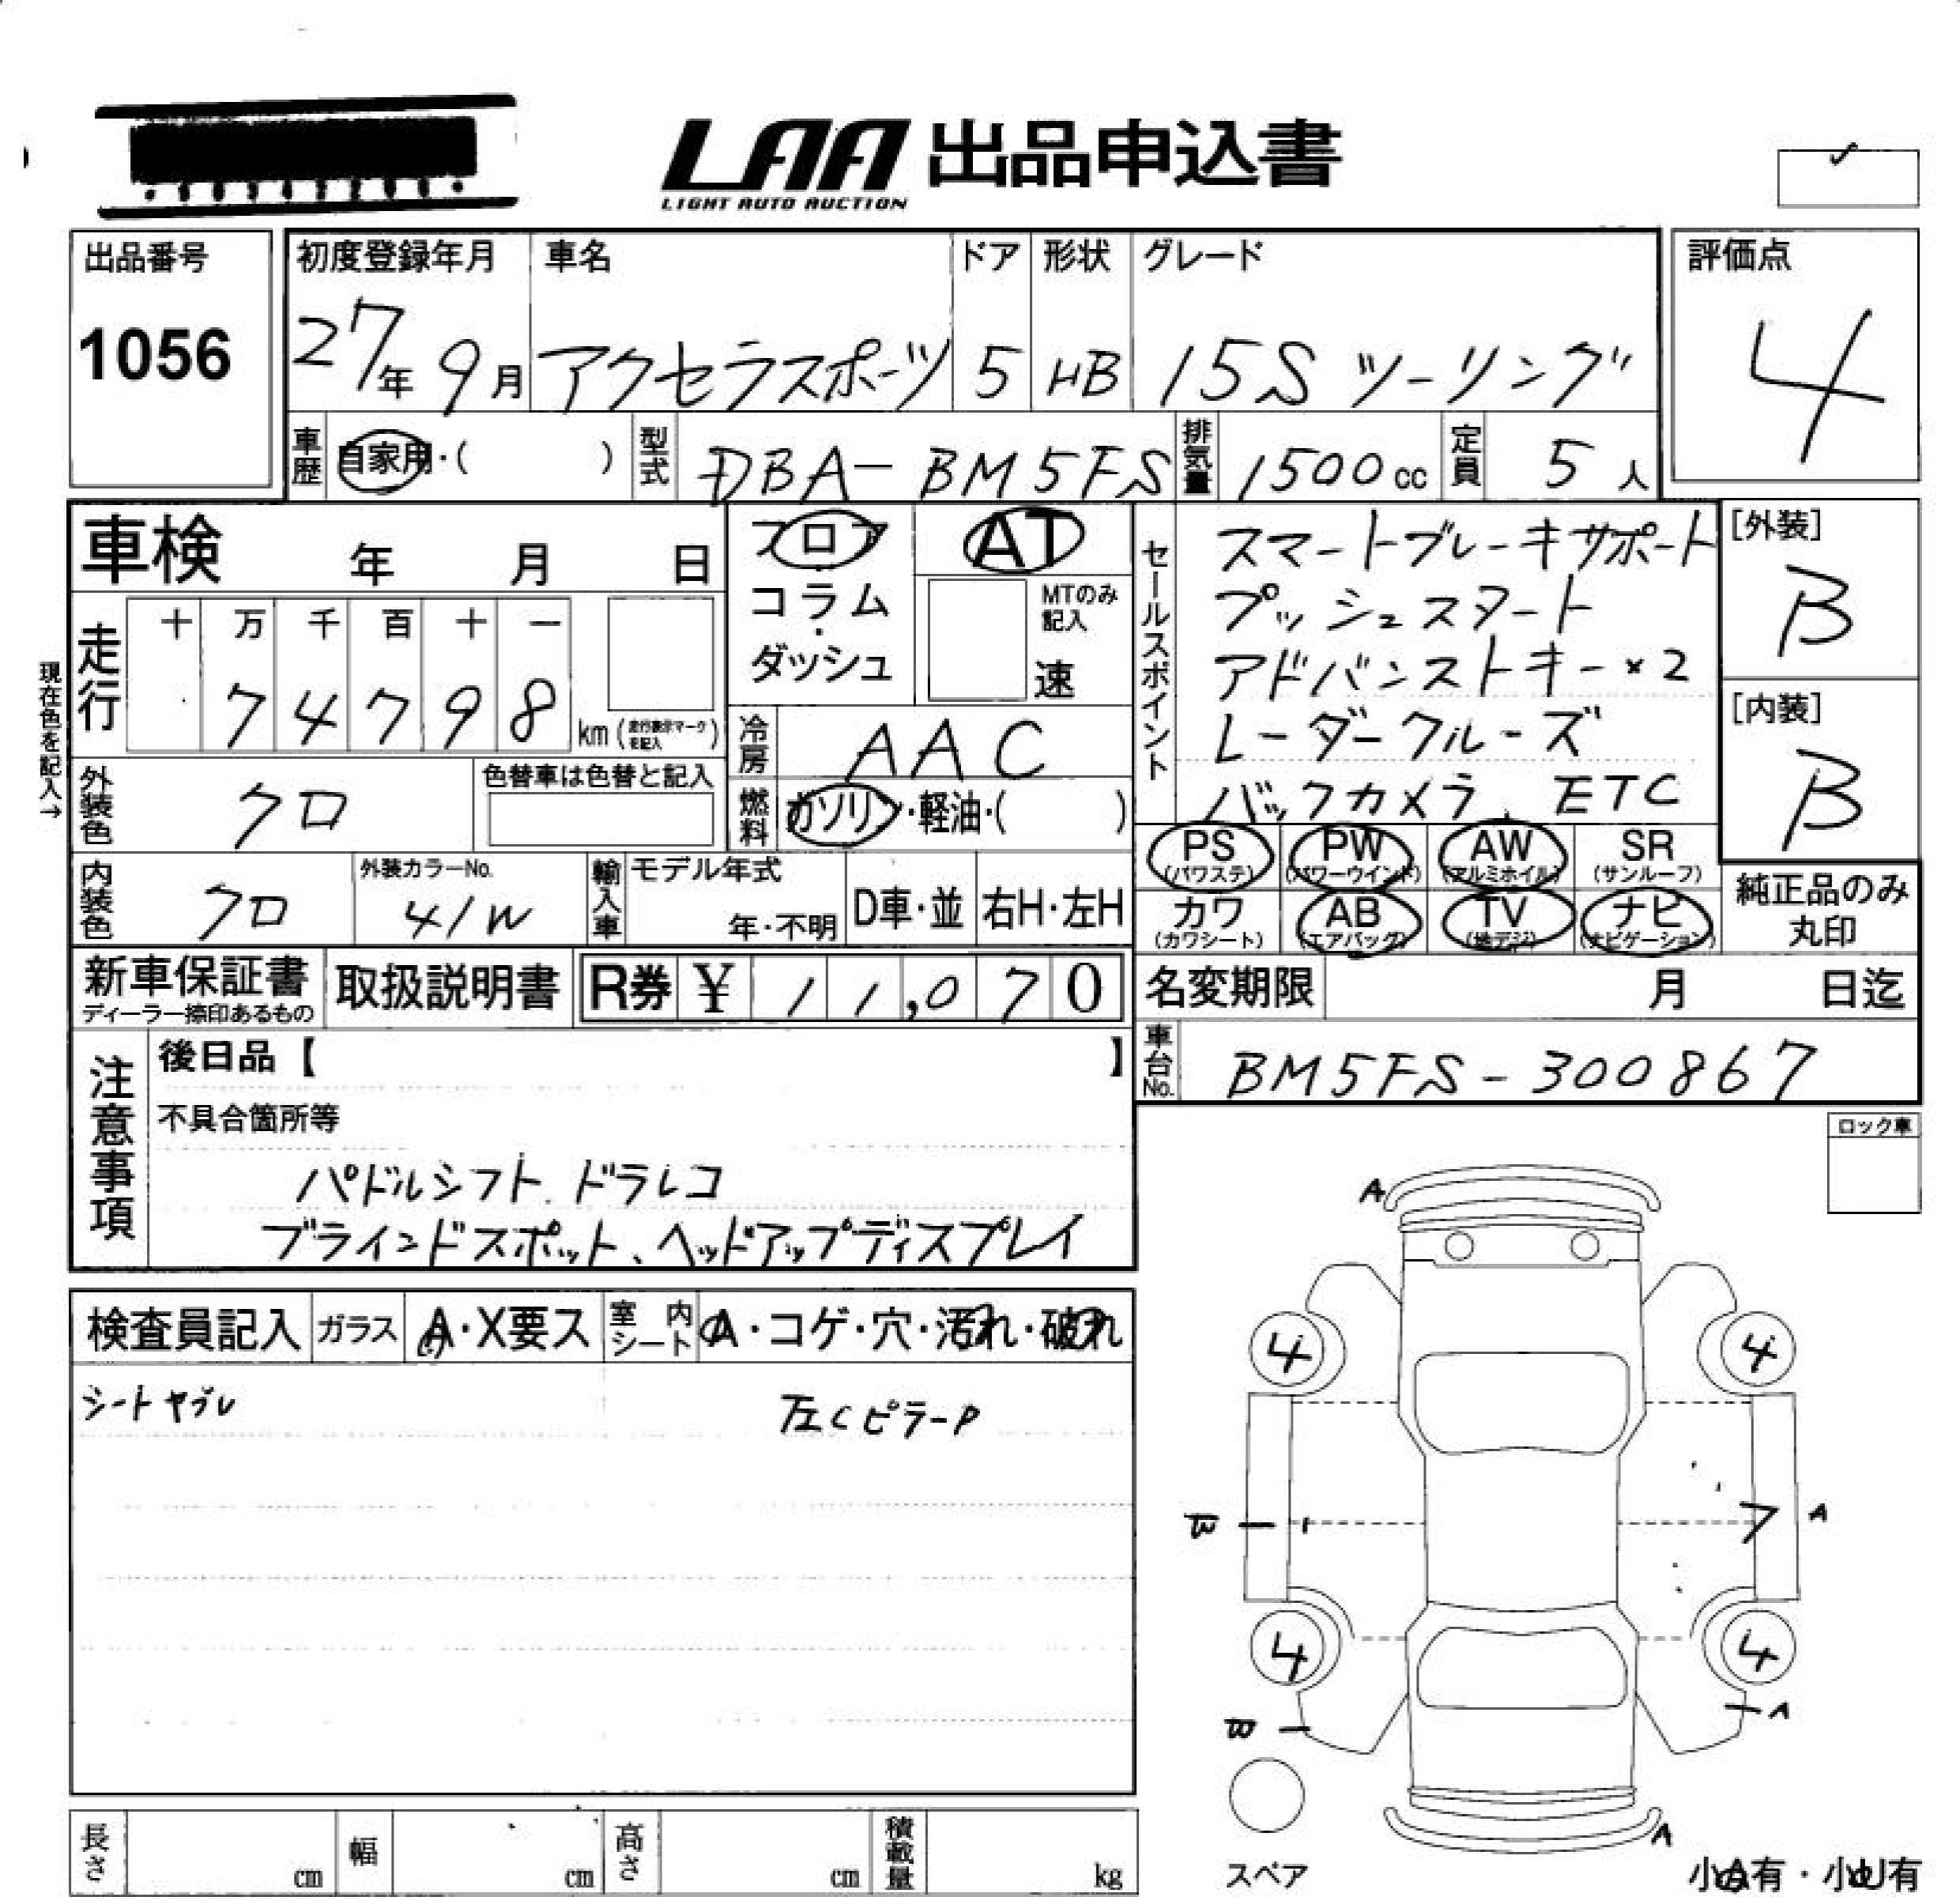 LAA 出品申込書
LIGHT AUTO AUCTION
出品番号
1056
初度登録年月
27年 9月
車名
アクセラスポーツ
ドア
5
形状
HB
グレード
15S ツーリング
評価点
4
車歴
自家用・( )
型式
DBA-BM5FS
排気量
1500cc
定員
5人
車検 年 月 日
走行
十 万 千 百 十 一
7 4 7 9 8
km (走行表示マークを記入)
現在色を記入→
外装色
クロ
色替車は色替と記入
内装色
クロ
外装カラーNo.
41W
フロア
コラム
・
ダッシュ
AT
MTのみ
記入
速
冷房
AAC
燃料
ガソリン・軽油・( )
輸入車
モデル年式
年・不明
D車・並
右H・左H
セールスポイント
スマートブレーキサポート
プッシュスタート
アドバンストキー×2
レーダークルーズ
バックカメラ、ETC
[外装]
B
[内装]
B
PS
(パワステ)
PW
(パワーウインド)
AW
(アルミホイル)
SR
(サンルーフ)
カワ
(カワシート)
AB
(エアバッグ)
TV
(地デジ)
ナビ
(ナビゲーション)
純正品のみ
丸印
新車保証書
ディーラー捺印あるもの
取扱説明書
R券 ¥ 11,070
名変期限 月 日迄
車台No.
BM5FS-300867
注意事項
後日品【 】
不具合箇所等
パドルシフト、ドラレコ
ブラインドスポット、ヘッドアップディスプレイ
ロック車
検査員記入
ガラス
A・X要ス
室内
シート
A・コゲ・穴・汚れ・破れ
シートヤブレ
左CピラーP
A
4
4
W
7
A
4
4
W
A
A
スペア
小A有・小U有
長さ cm
幅 cm
高さ cm
積載量 kg